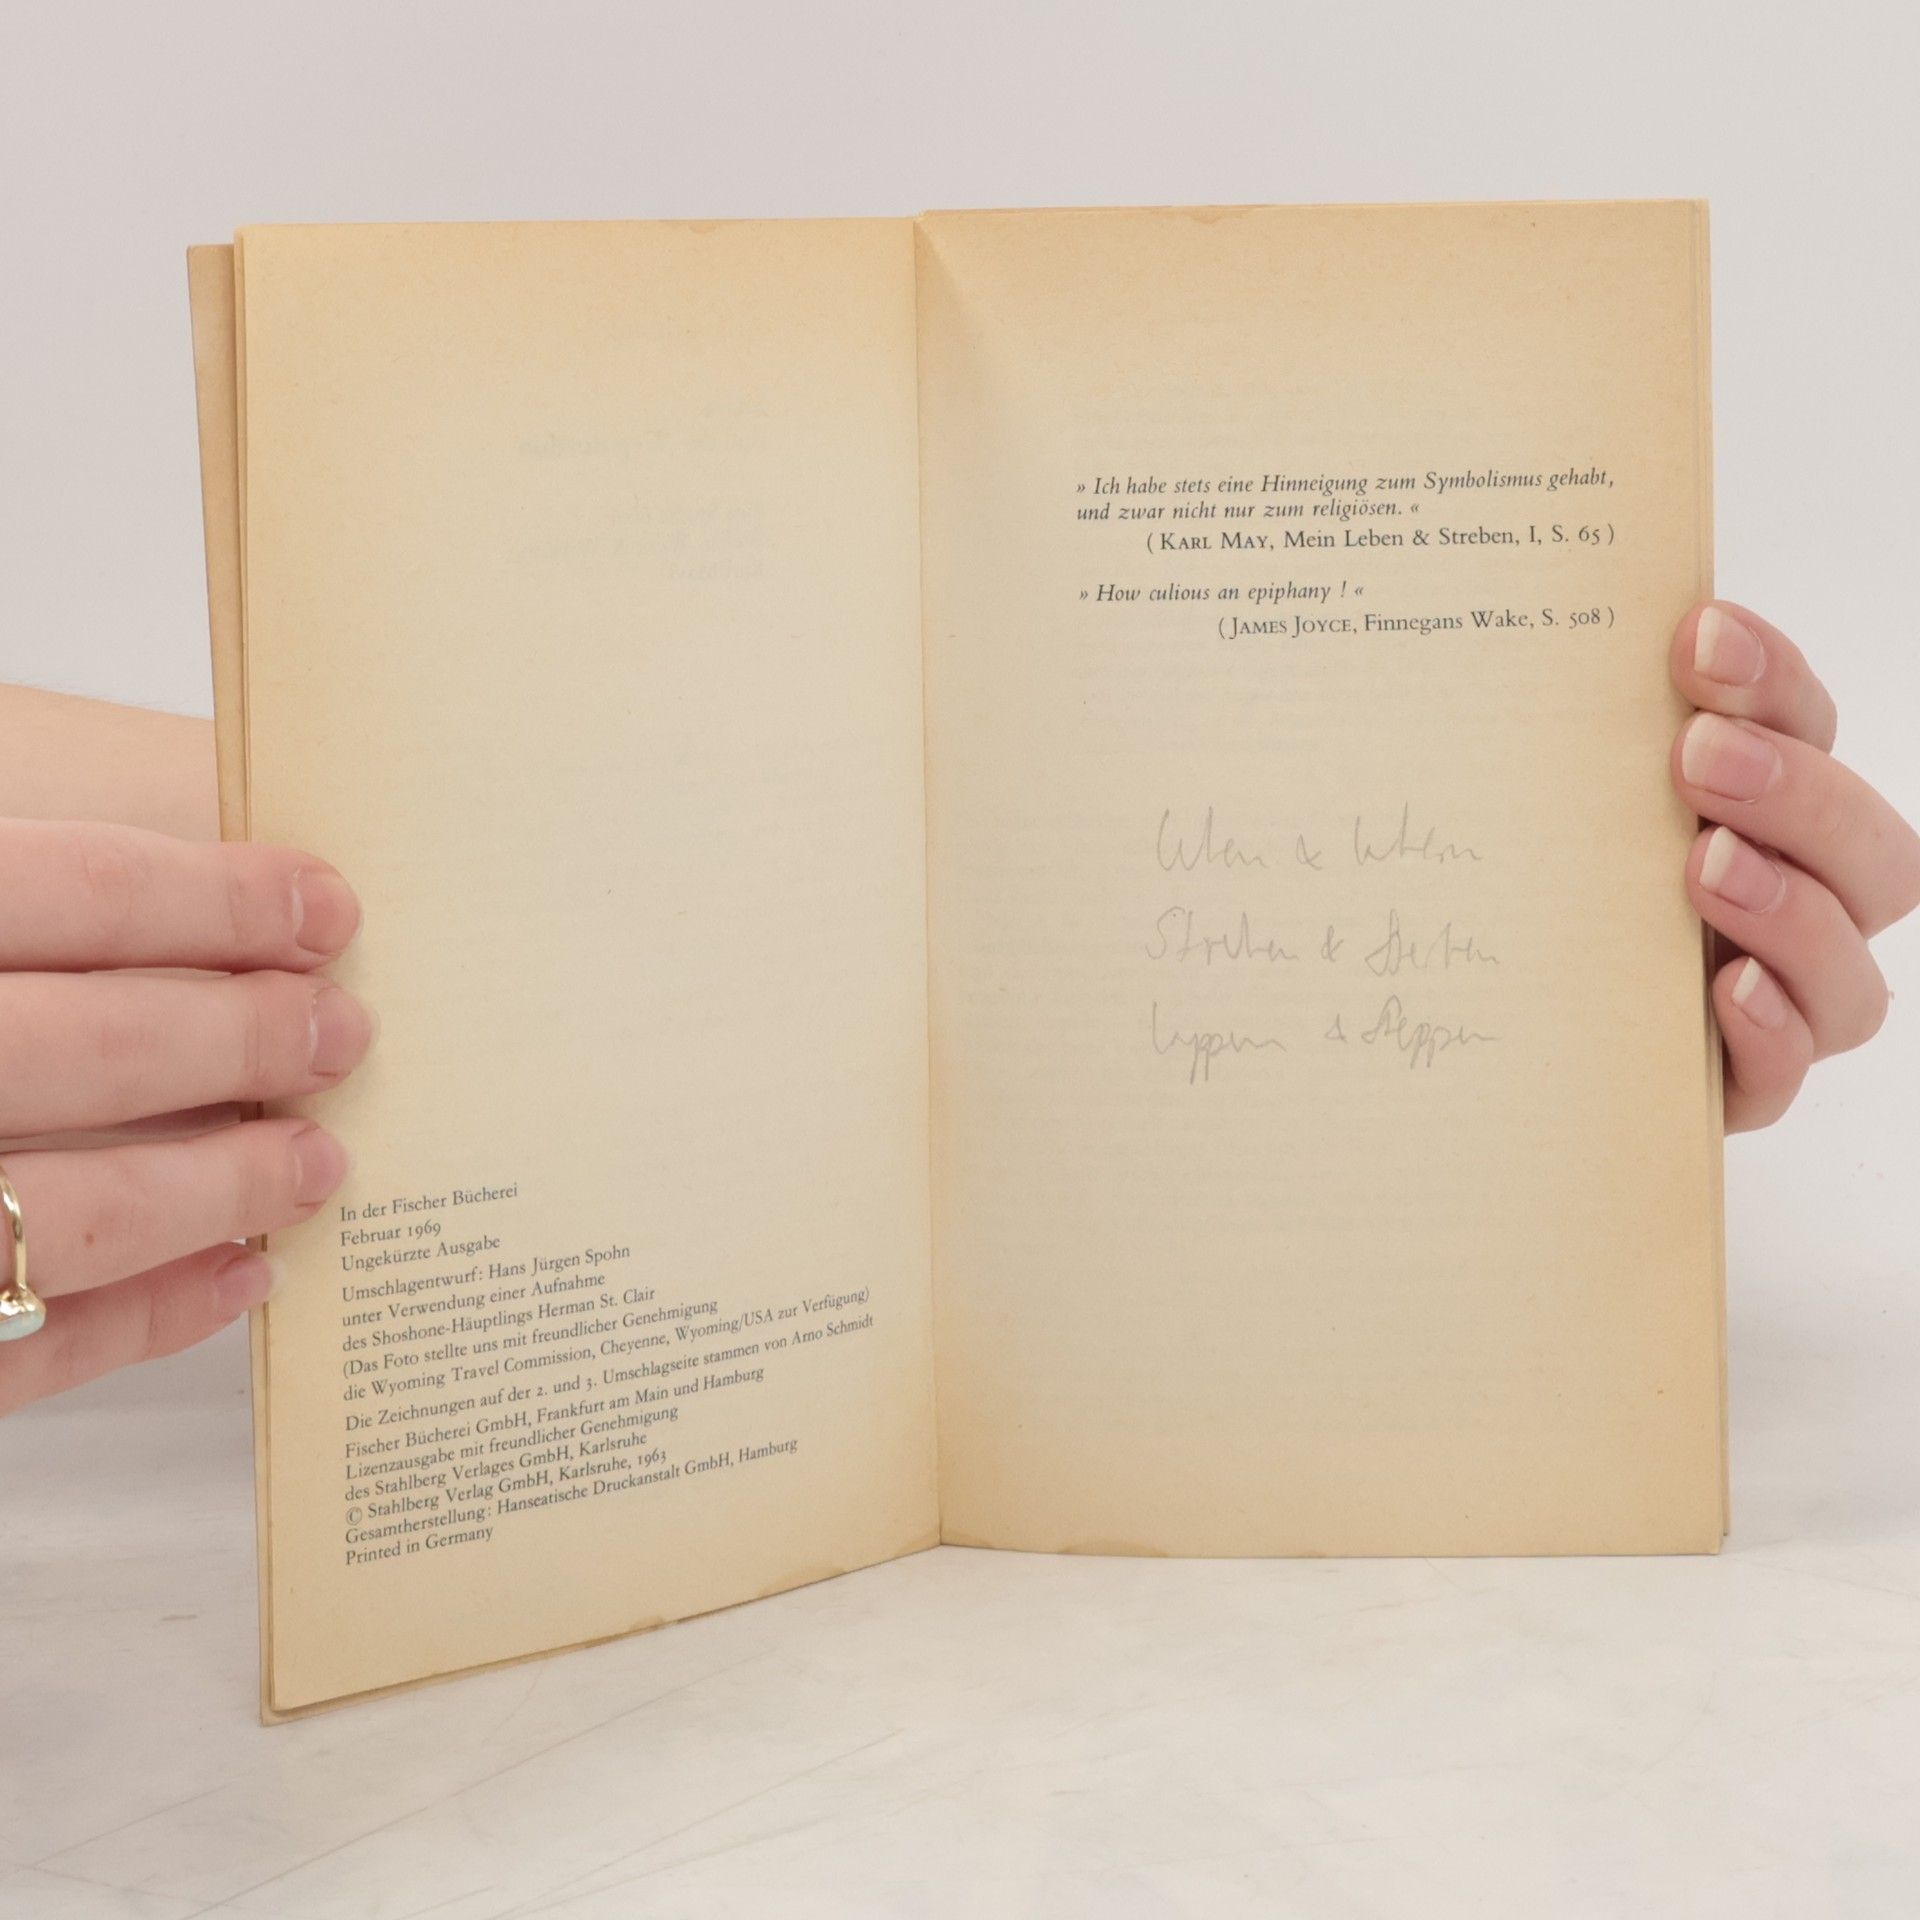 In der Fischer Bücherei
Februar 1969
Ungekürzte Ausgabe
Umschlagentwurf: Hans Jürgen Spohn
unter Verwendung einer Aufnahme
des Shoshone-Häuptlings Herman St. Clair
(Das Foto stellte uns mit freundlicher Genehmigung
die Wyoming Travel Commission, Cheyenne, Wyoming/USA zur Verfügung)
Die Zeichnungen auf der 2. und 3. Umschlagseite stammen von Arno Schmidt
Fischer Bücherei GmbH, Frankfurt am Main und Hamburg
Lizenzausgabe mit freundlicher Genehmigung
des Stahlberg Verlages GmbH, Karlsruhe
© Stahlberg Verlag GmbH, Karlsruhe, 1963
Gesamtherstellung: Hanseatische Druckanstalt GmbH, Hamburg
Printed in Germany
» Ich habe stets eine Hinneigung zum Symbolismus gehabt,
und zwar nicht nur zum religiösen. «
( KARL MAY, Mein Leben & Streben, I, S. 65 )
» How culious an epiphany ! «
( JAMES JOYCE, Finnegans Wake, S. 508 )
&
Streben & Sterben
&